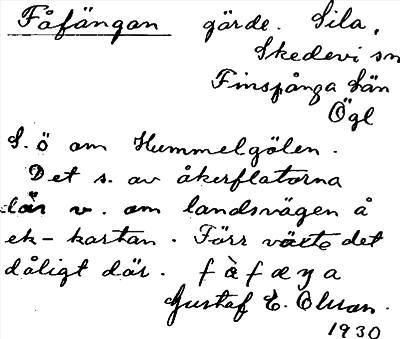 Fåfängan gärde. Sila,
Skedevi sn
Finspånga län
Ögl
S. ö om Hummelgölen.
Det s. av åkerflatorna
där v. om landsvägen å
ek-kartan. Förr växte det
dåligt där. fàfæŋa
Gustaf E. Olsson.
1930